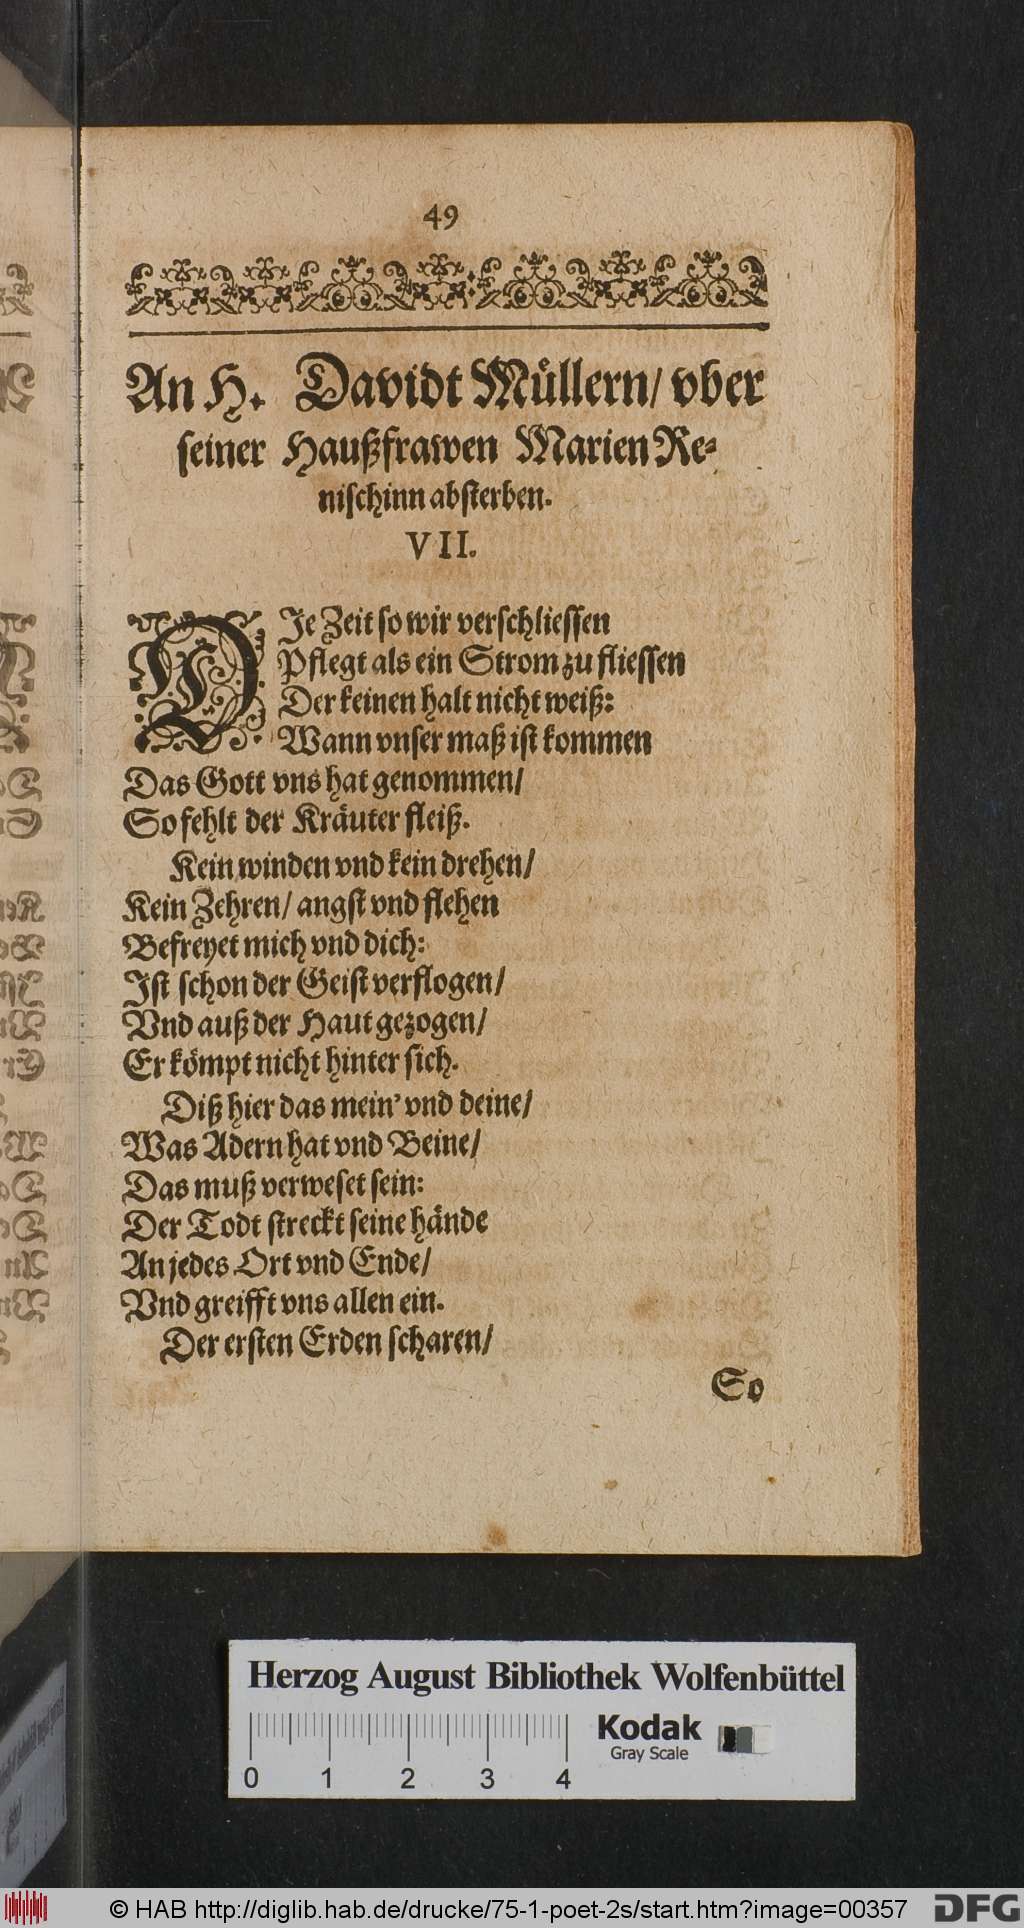 49
An H. Davidt Müllern/ vber
seiner Haußfrawen Marien Re-
nischinn absterben.
VII.
DJe Zeit so wir verschliessen
Pflegt als ein Strom zu fliessen
Der keinen halt nicht weiß:
Wann vnser maß ist kommen
Das Gott vns hat genommen/
So fehlt der Kräuter fleiß.
Kein winden vnd kein drehen/
Kein Zehren/ angst vnd flehen
Befreyet mich vnd dich:
Jst schon der Geist verflogen/
Vnd auß der Haut gezogen/
Er kömpt nicht hinter sich.
Diß hier das mein' vnd deine/
Was Adern hat vnd Beine/
Das muß verweset sein:
Der Todt streckt seine hände
An jedes Ort vnd Ende/
Vnd greifft vns allen ein.
Der ersten Erden scharen/
So
Herzog August Bibliothek Wolfenbüttel
Kodak
Gray Scale
0 1 2 3 4
© HAB http://diglib.hab.de/drucke/75-1-poet-2s/start.htm?image=00357
DFG